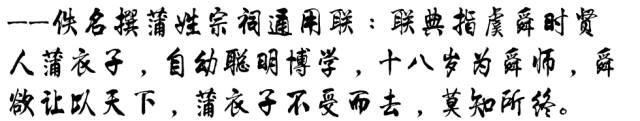 ——佚名撰蒲姓宗祠通用联：联典指虞舜时贤
人蒲衣子，自幼聪明博学，十八岁为舜师，舜
欲让以天下，蒲衣子不受而去，莫知所终。